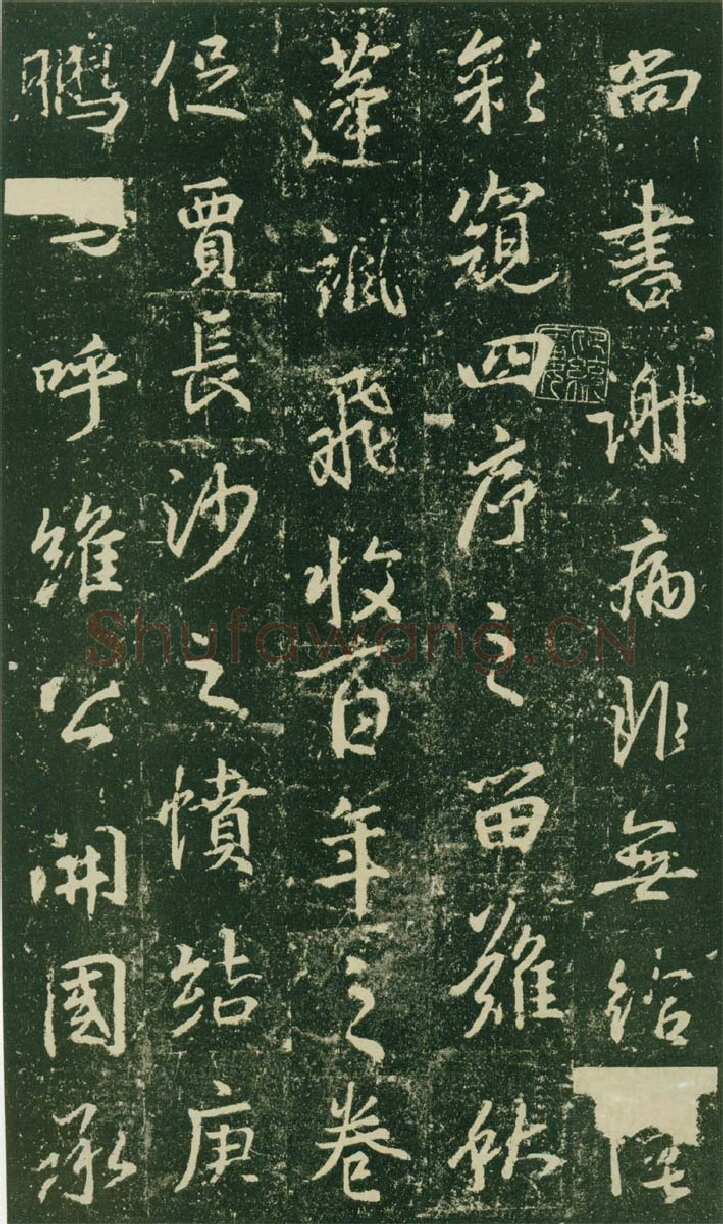 尚書謝病非無給
彩窺四序之留難
蓬颯飛收百年之卷
促賈長沙之憤結庚
鵩呼維公開國承
Shufawang.CN